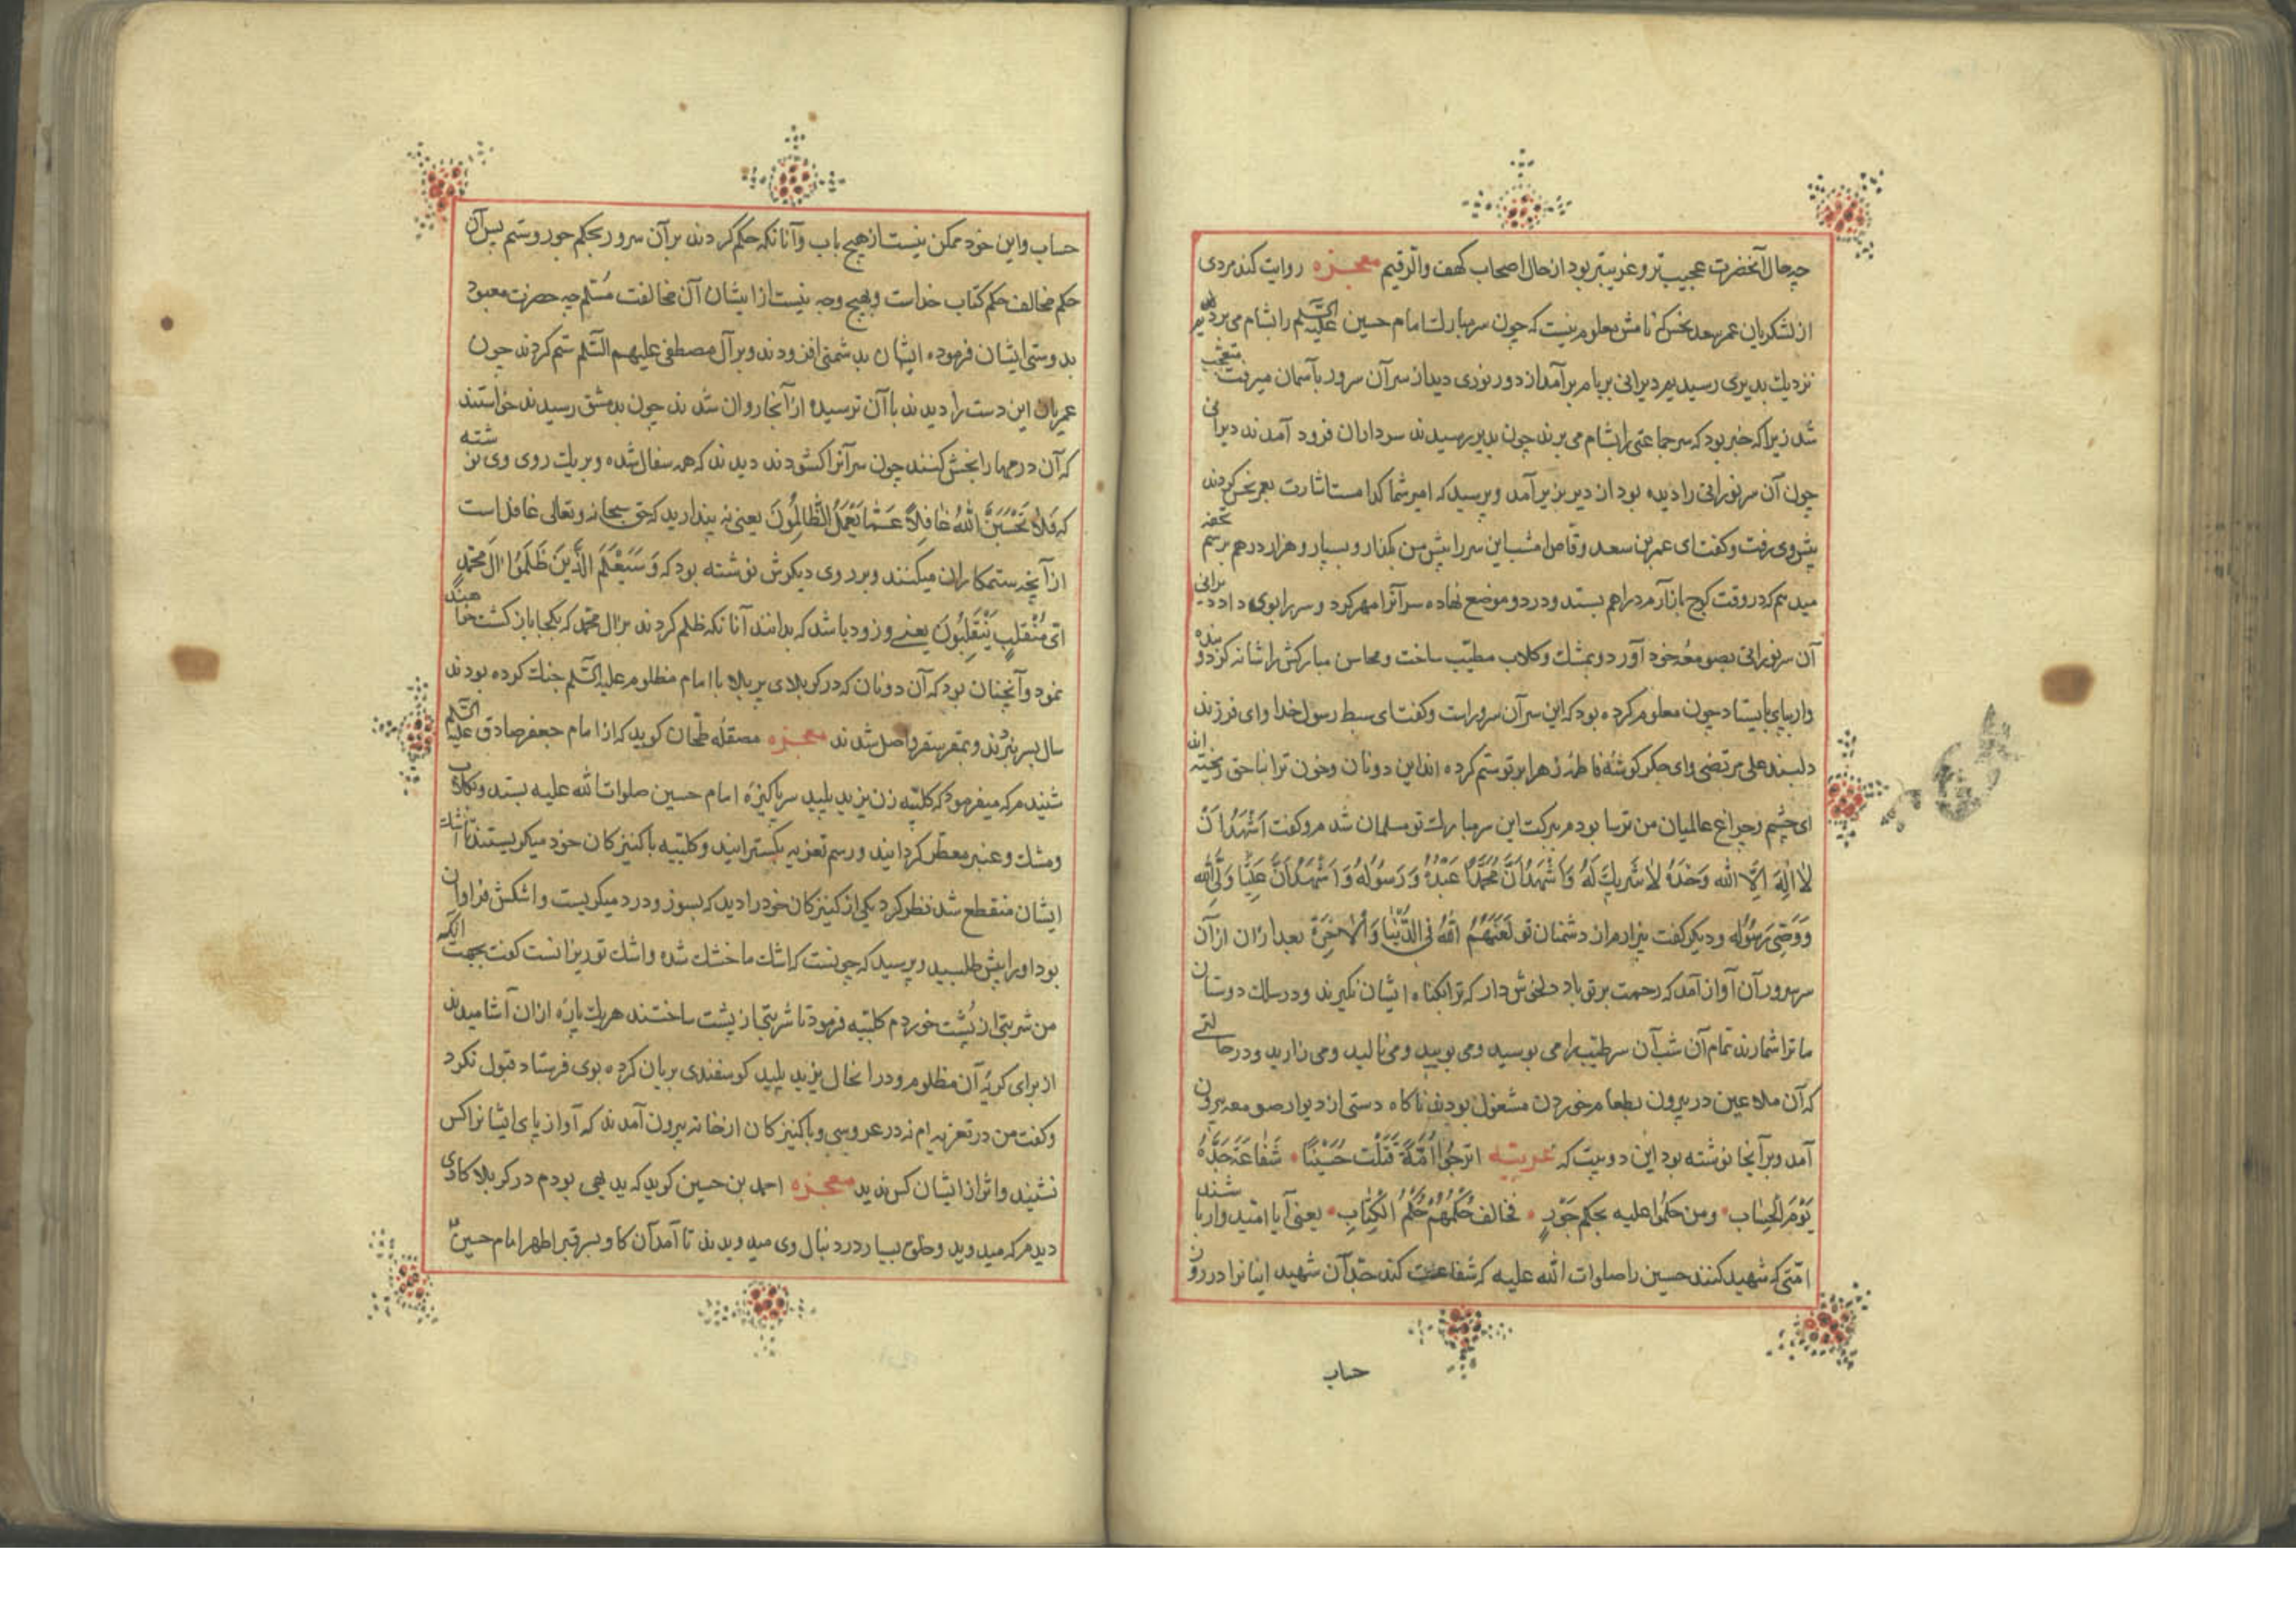 چه حال آنحضرت عجیب‌تر و غریبتر بود از حال اصحاب کهف والرقیم معجزه روایت کند مردی
از لشکریان عمر سعد نحس که نامش معلوم نیست که چون سر مبارک امام حسین علیه السّلم را بشام می بردیم
نزدیک بدیری رسیدیم دیرانی بر بام برآمد از دور نوری دید از سر آن سرور بآسمان میرفت متعجب
شد زیرا که خبر بود که سر جماعتی را بشام می برند چون بدیر رسیدند سرداران فرود آمدند دیرانی
چون آن سر نورانی را دیده بود از دیر بزیر آمد و پرسید که امیر شما کدامست اشارت بعمر نحس کردند
پیش وی رفت و کفت ای عمر بن سعد وقاص امشب این سر را پیش من بکذار و بسپار و هزار درهم برسم تحفه
میدهم که در وقت کوچ باز آرم درا هم بستد و در دو موضع نهاده سر آنرا مهر کرد و سر را بوی داد دیرانی
آن سر نورانی بصومعهٔ خود آورد و بمشک و کلاب مطیّب ساخت و محاسن مبارکش را شانه کرد و بنده
وار بپای بایستاد چون معلوم کرده بود که این سر آن سرور است و کفت ای سبط رسول خدا و ای فرزند
دلبند علی مرتضی و ای جکر کوشهٔ فاطمهٔ زهرا بر تو ستم کرده اند این دونان و خون ترا بناحق ریخته اند
ای چشم و چراغ عالمیان من ترسا بودم ببرکت این سر مبارک تو مسلمان شدم و کفت اَشْهَدُ اَنْ
لاٰ اِلٰهَ اِلَّا اللّٰه وَحْدَهُ لاٰ شَرِیكَ لَهُ وَ اَشْهَدُ اَنَّ مُحَمَّدًا عَبْدُهُ وَ رَسُولُهُ وَ اَشْهَدُ اَنَّ عَلِیًّا وَلِیُّ اللّٰه
وَ وَصِیُّ رَسُولِه و دیکر کفت بیزارم از دشمنان تو لَعَنَهُمُ اللّٰهُ فِی الدُّنْیٰا وَ الْاٰخِرَةِ بعد از ان از آن
سرور آن آواز آمد که رحمت بر تو باد دلخوش دار که ترا بکناه ایشان نکیرند و در سلک دوستان
ما ترا شمارند تمام آن شب آن سر طیّب را می بوسید و می بویید و می نالید و می زارید و در حالتی
که آن ملاعین در بیرون بطعام خوردن مشغول بودند ناکاه دستی از دیوار صومعه بیرون
آمد و بر آنجا نوشته بود این دو بیت که عربیه اترجُوا اُمَّةٌ قَتَلَتْ حُسَیْنًا • شَفٰاعَةَ جَدِّهِ
یَوْمَ الْحِسٰاب • و من حکمُوا علیه بحکم جَوْرٍ • فخالف حُکْمُهُمْ حُکْمَ الْکِتٰابِ • یعنی آیا امّیدوار باشند
امّتی که شهید کنند حسین را صلوات اللّه علیه که شفاعت کند جدّ آن شهید ایشانرا در روز
حساب
حساب و این خود ممکن نیست از هیچ باب و آنانکه حکم کردند بر آن سرور بحکم جور و ستم پس آن
حکم مخالف حکم کتاب خداست و بهیچ وجه نیست از ایشان آن مخالفت مُسَلّم چه حضرت معبود
بدوستی ایشان فرموده ایشان بدشمنی افزودند و بر آل مصطفی علیهم السّلم ستم کردند چون
عمریان این دست را دیدند با آن ترسیده از آنجا روان شدند چون بدمشق رسیدند خواستند
که آن درمها را بخش کنند چون سر آنرا کشودند دیدند که همه سفال شده و بر یک روی وی نوشته
که فَلاٰ تَحْسَبَنَّ اللّٰهَ غٰافِلاً عَمّٰا یَعْمَلُ الظّٰالِمُونَ یعنی نه پندارید که حق سبحانه و تعالی غافل است
از آنچه ستمکاران میکنند و بر روی دیکرش نوشته بود که وَ سَیَعْلَمُ الَّذینَ ظَلَمُوا اٰلَ مُحَمَّدٍ
اَیَّ مُنْقَلَبٍ یَنْقَلِبُونَ یعنی و زود باشد که بدانند آنانکه ظلم کردند بر آل محمّد که بکجا باز کشت خواهند
نمود و آنچنان بود که آن دونان که در کربلای پر بلا با امام مظلوم علیه السّلم جنک کرده بودند
سال بسر نبردند و بمقر سقر واصل شدند معجزه مصقلهٔ طحّان کوید که از امام جعفر صادق علیه السّلم
شنیدم که میفرمود که کلبیه زن یزید پلید سر پاکیزهٔ امام حسین صلوات اللّه علیه بستد و بکلاب
و مشک و عنبر معطر کردانید و رسم تعزیه بکسترانید و کلبیه با کنیزکان خود میکریستند تا اشک
ایشان منقطع شد نظر کرد یکی از کنیزکان خود را دید که بسوز و درد میکریست و اشکش فراوان
بود او را پیش طلبید و پرسید که چونست که اشک ما خشک شده و اشک تو ریزانست کفت بجهت آنکه
من شربتی از پُشت خوردم کلبیه فرمود تا شربتی از پشت ساختند هر یک پارهٔ ازان آشامیدند
از برای کریهٔ آن مظلوم و در انحال یزید پلید کوسفندی بریان کرده بوی فرستاد قبول نکرد
و کفت من در تعزیه ام نه در عروسی و با کنیزکان از خانه بیرون آمدند که آواز پای ایشانرا کس
نشنید و اثر از ایشان کس ندید معجزه احمد بن حسین کوید که بدیهی بودم در کربلا کاوی
دیدم که میدوید و خلق بسیار در دنبال وی میدویدند تا آمد آن کاو بسر قبر اطهر امام حسین